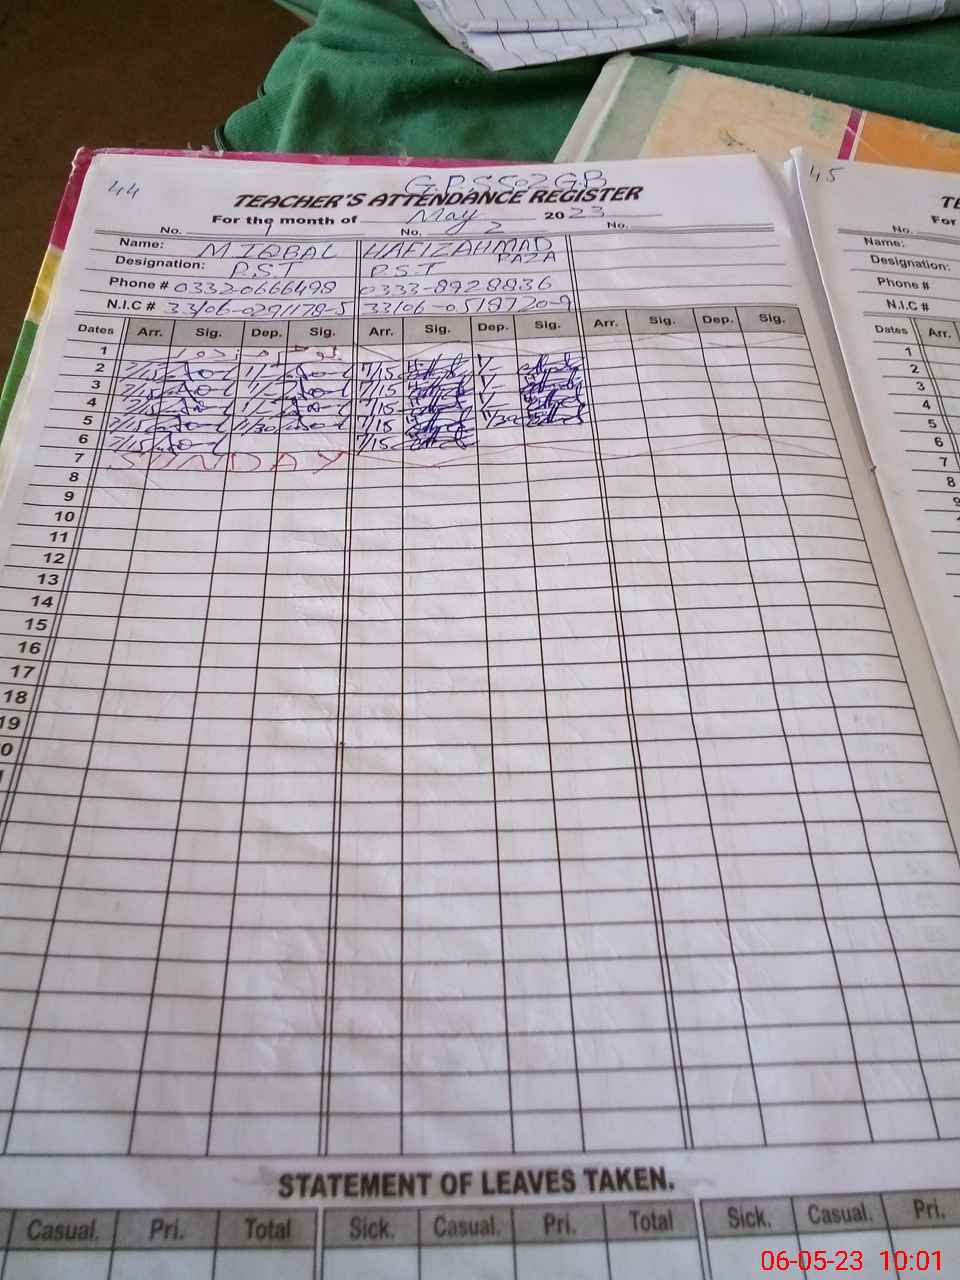 44
G.P.S 502 G.B
TEACHER'S ATTENDANCE REGISTER
For the month of May 2023
No. 1 No. 2 No.
Name: M IQBAL HAFIZ AHMAD RAZA
Designation: P.S.T P.S.T
Phone # 0332-0666498 0333-8928836
N.I.C # 33106-0291178-5 33106-0519720-9
Dates Arr. Sig. Dep. Sig. Arr. Sig. Dep. Sig. Arr. Sig. Dep. Sig.
1
2 7/15 1/- 7/15 1/-
3 7/15 1/- 7/15 1/-
4 7/15 1/- 7/15 1/-
5 7/15 11/30 7/15 11/30
6 7/15 7/15
7 SUNDAY
8
9
10
11
12
13
14
15
16
17
18
19
STATEMENT OF LEAVES TAKEN.
Casual. Pri. Total Sick. Casual. Pri. Total Sick. Casual. Pri.
45
TE
For
No.
Name:
Designation:
Phone #
N.I.C #
Dates Arr.
1
2
3
4
5
6
7
8
9
06-05-23 10:01